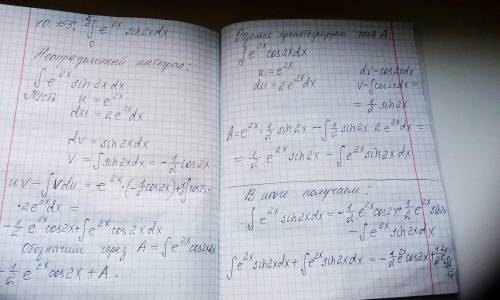 ∫ e^2x sin2x dx
Неопределенный интеграл:
∫ e^2x sin2x dx
Пусть u = e^2x
du = 2e^2x dx
dv = sin2x dx
v = ∫ sin2x dx = -1/2 cos2x
uv - ∫ v du = e^2x · (-1/2 cos2x) + 1/2 ∫ cos2x ·
· 2e^2x dx =
-1/2 e^2x cos2x + ∫ e^2x cos2x dx
Обозначим через A = ∫ e^2x cos2x dx
-1/2 e^2x cos2x + A.
Отдельно проинтегрируем A
∫ e^2x cos2x dx
u = e^2x
du = 2e^2x dx
dv = cos2x dx
v = ∫ cos2x dx =
= 1/2 sin2x
A = e^2x · 1/2 sin2x - ∫ 1/2 sin2x · 2e^2x dx =
= 1/2 e^2x sin2x - ∫ e^2x sin2x dx
В итоге получаем:
∫ e^2x sin2x dx = -1/2 e^2x cos2x + 1/2 e^2x sin2x
- ∫ e^2x sin2x dx
∫ e^2x sin2x dx + ∫ e^2x sin2x dx = -1/2 e^2x cos2x + 1/2 e^2x sin2x